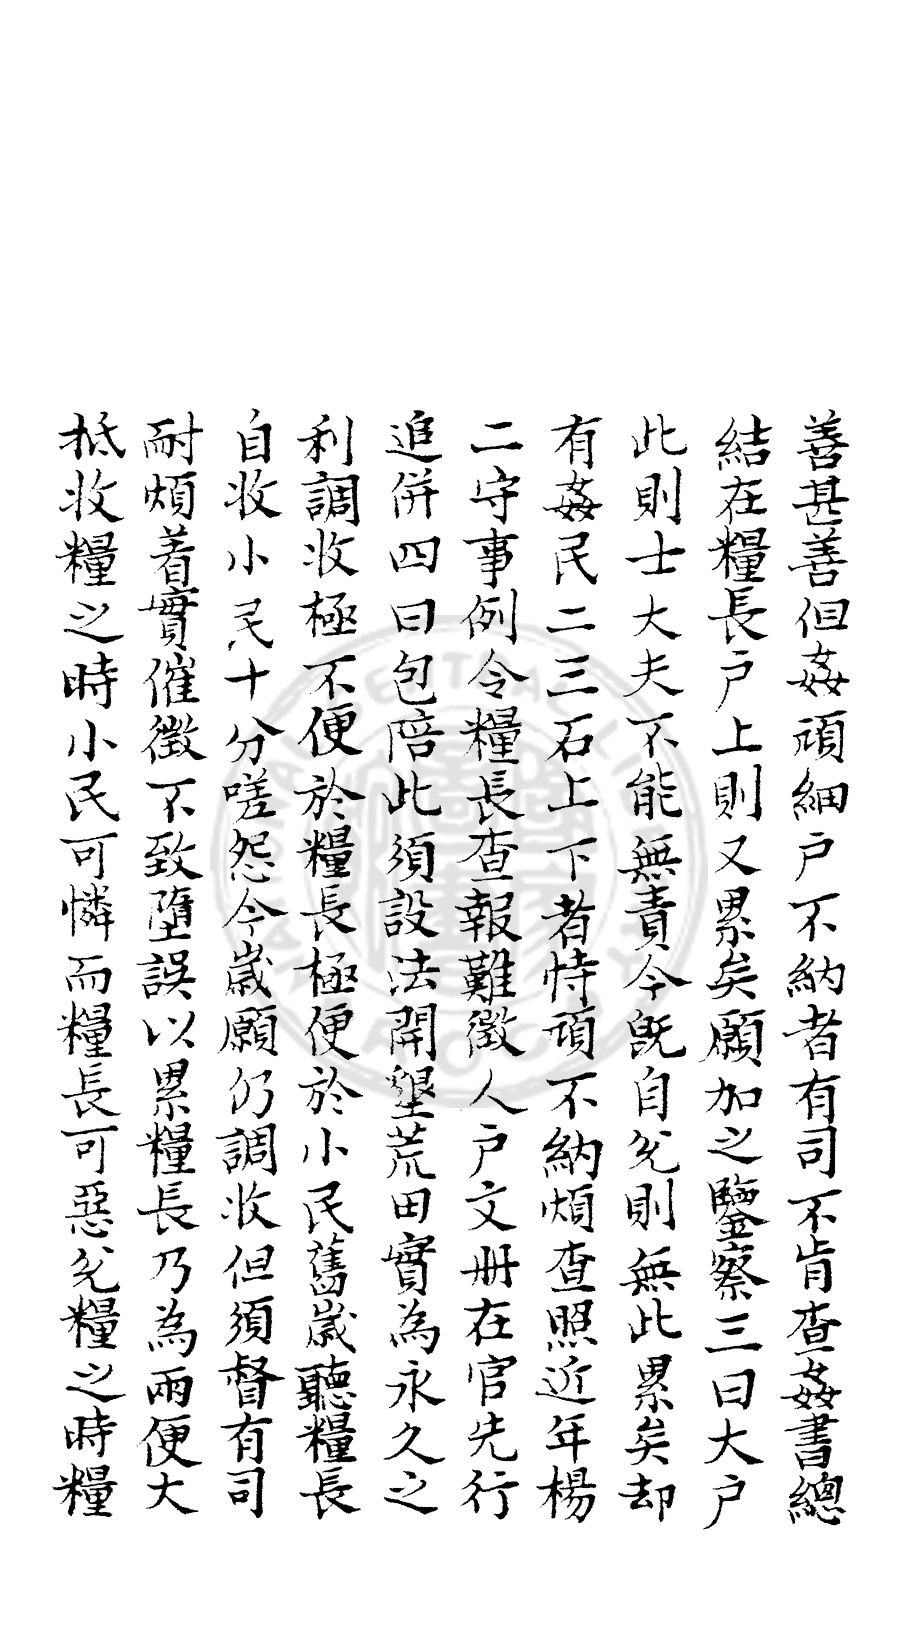 善甚善但姦頑細户不納者有司不肯查姦書總
結在糧長户上則又累矣願加之鑒察三曰大户
此則士大夫不能無責今旣自兊則無此累矣却
有姦民二三石上下者恃頑不納煩查照近年楊
二守事例令糧長查報難徵人户文册在官先行
追併四曰包陪此須設法開墾荒田實為永久之
利調收極不便於糧長極便於小民舊歲聽糧長
自收小民十分嗟怨今歲願仍調收但須督有司
耐煩着實催徵不致墮誤以累糧長乃為兩便大
抵收糧之時小民可憐而糧長可惡兊糧之時糧